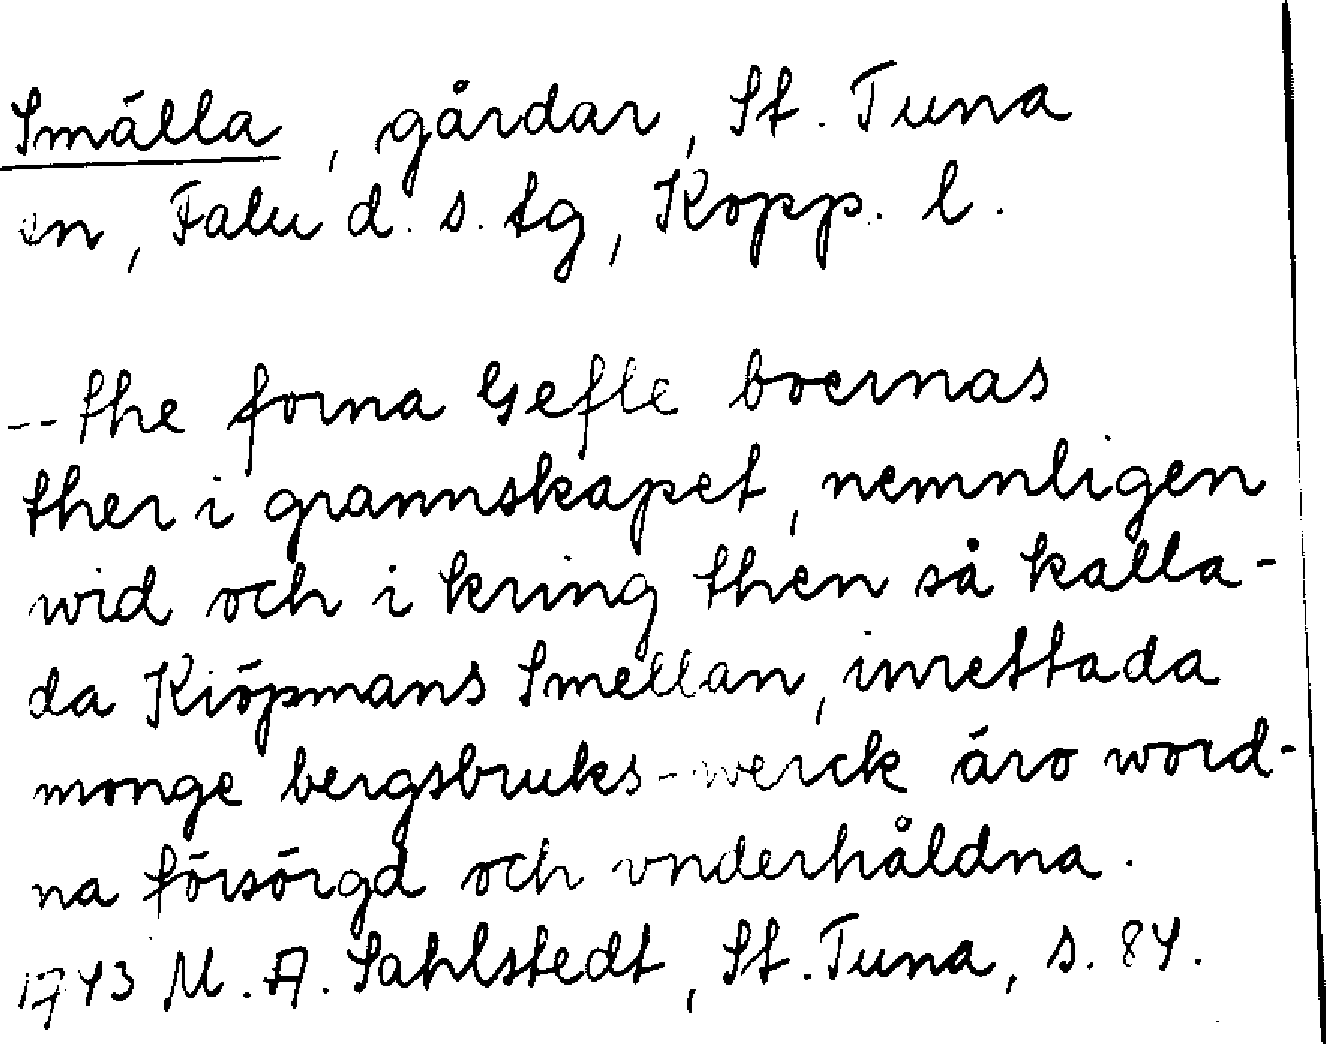 Smälla, gårdar, St. Tuna
sn, Falu d. s. tg, Kopp. l.
-- the forna Gefle boernas
ther i grannskapet, nemnligen
wid och i kring then så kalla-
da Kiöpmans Smellan, inrettada
monge bergsbruks-werck äro word-
na försörgd och vnderhåldna.
1743 M. A. Sahlstedt, St. Tuna, s. 84.